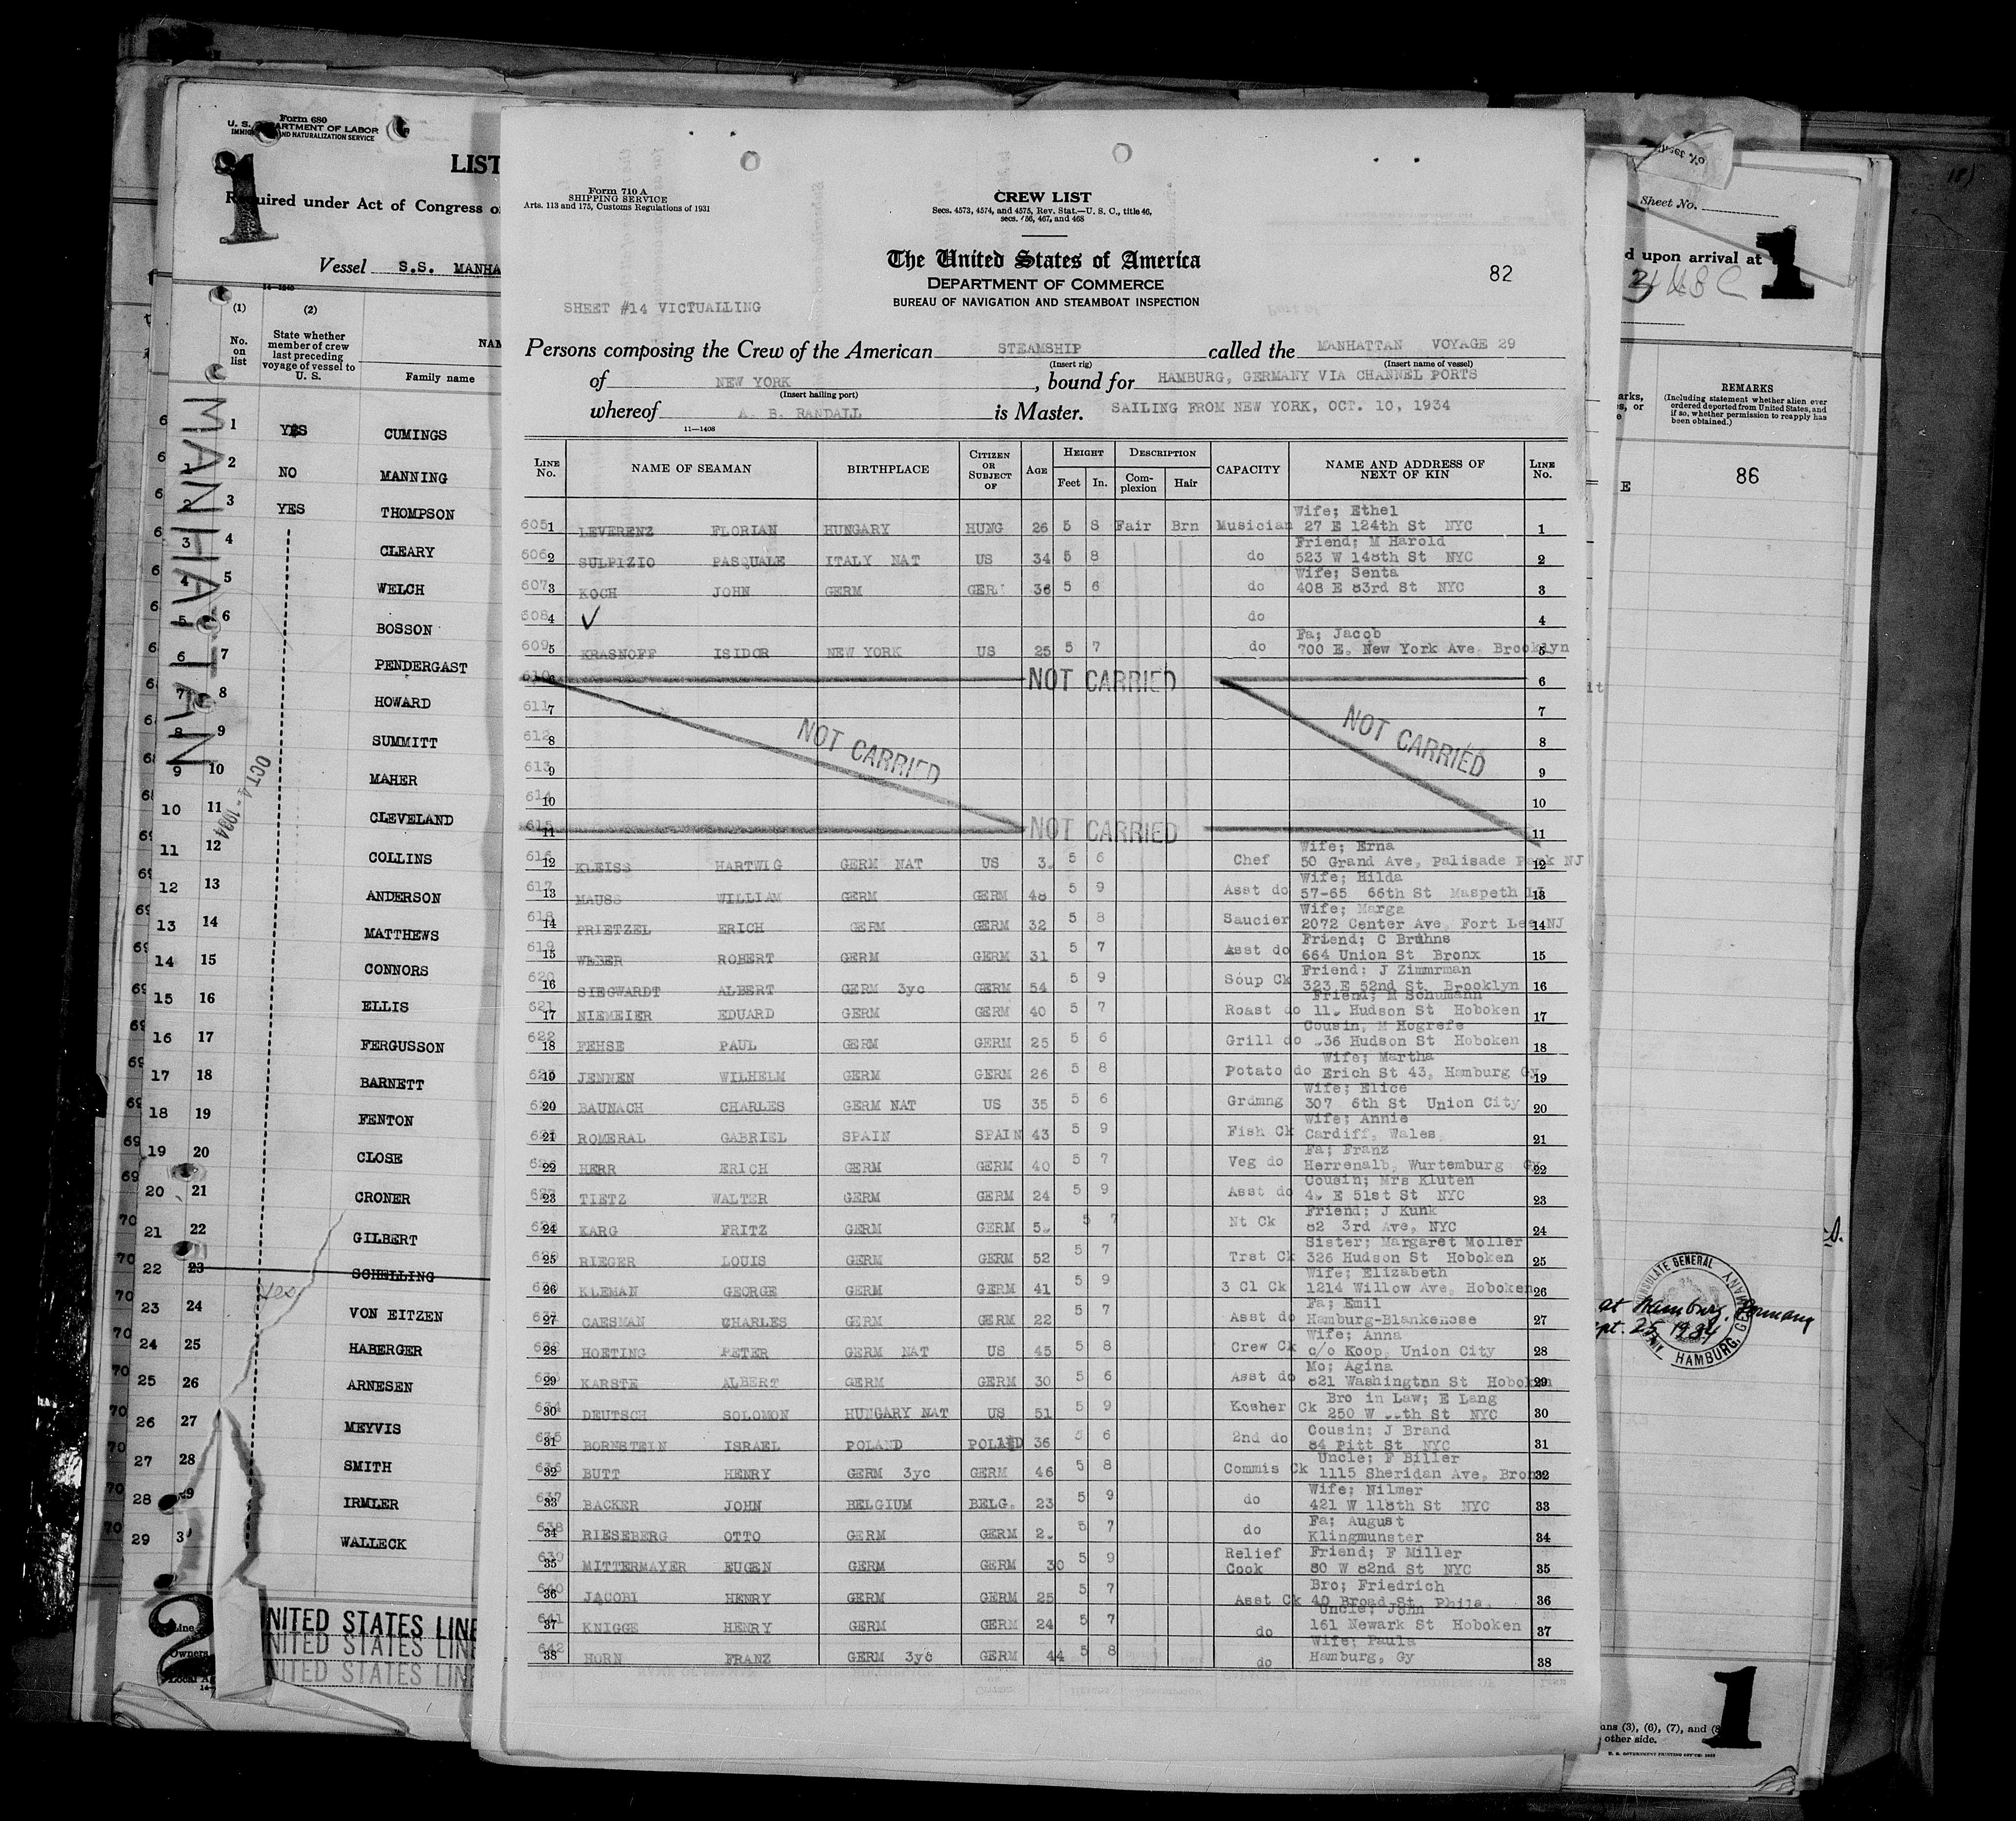 Form 680
U. S. DEPARTMENT OF LABOR
IMMIGRATION AND NATURALIZATION SERVICE
1
LIST
Required under Act of Congress of
Vessel S.S. MANHA
(1) (2)
No. on list
State whether member of crew last preceding voyage of vessel to U. S.
NAM
Family name
MANHATTAN
OCT 4 - 1934
1 YES CUMINGS
2 NO MANNING
3 YES THOMPSON
4 CLEARY
5 WELCH
6 BOSSON
7 PENDERGAST
8 HOWARD
9 SUMMITT
10 MAHER
11 CLEVELAND
12 COLLINS
13 ANDERSON
14 MATTHEWS
15 CONNORS
16 ELLIS
17 FERGUSSON
18 BARNETT
19 FENTON
20 CLOSE
21 CRONER
22 GILBERT
23 SCHELLING
24 yes VON EITZEN
25 HABERGER
26 ARNESEN
27 MEYVIS
28 SMITH
29 IRMLER
WALLECK
2
Line
Owners
Local Ag
UNITED STATES LINE
UNITED STATES LINE
UNITED STATES LINE
Form 710 A
SHIPPING SERVICE
Arts. 113 and 175, Customs Regulations of 1931
CREW LIST
Secs. 4573, 4574, and 4575, Rev. Stat.—U. S. C., title 46,
secs. 466, 467, and 468
The United States of America
DEPARTMENT OF COMMERCE
BUREAU OF NAVIGATION AND STEAMBOAT INSPECTION
82
SHEET #14 VICTUALLING
Persons composing the Crew of the American STEAMSHIP called the MANHATTAN VOYAGE 29
(Insert rig) (Insert name of vessel)
of NEW YORK, bound for HAMBURG, GERMANY VIA CHANNEL PORTS
(Insert hailing port)
whereof A. B. RANDALL is Master. SAILING FROM NEW YORK, OCT. 10, 1934
11—1408
LINE No. NAME OF SEAMAN BIRTHPLACE CITIZEN OR SUBJECT OF AGE HEIGHT Feet In. DESCRIPTION Complexion Hair CAPACITY NAME AND ADDRESS OF NEXT OF KIN LINE No.
Wife; Ethel
605 1 LEVERENZ FLORIAN HUNGARY HUNG 26 5 8 Fair Brn Musician 27 E 124th St NYC 1
Friend; M Harold
606 2 SULPIZIO PASQUALE ITALY NAT US 34 5 8 do 523 W 148th St NYC 2
Wife; Senta
607 3 KOCH JOHN GERM GERM 36 5 6 do 408 E 83rd St NYC 3
608 4 ✓ do 4
Fa; Jacob
609 5 KRASNOFF ISIDOR NEW YORK US 25 5 7 do 700 E. New York Ave Brooklyn 5
610 6 NOT CARRIED 6
611 7 7
612 8 NOT CARRIED NOT CARRIED 8
613 9 9
614 10 10
615 11 NOT CARRIED 11
Wife; Erna
616 12 KLEISS HARTWIG GERM NAT US 5 6 Chef 50 Grand Ave, Palisade Park NJ 12
Wife; Hilda
617 13 MAUSS WILLIAM GERM GERM 48 5 9 Asst do 57-65 66th St Maspeth LI 13
Wife; Marga
618 14 PRIETZEL ERICH GERM GERM 32 5 8 Saucier 2072 Center Ave, Fort Lee NJ 14
Friend; C Bruhns
619 15 WEBER ROBERT GERM GERM 31 5 7 Asst do 664 Union St Bronx 15
Friend; J Zimmrman
620 16 SIEGWARDT ALBERT GERM 3yc GERM 54 5 9 Soup Ck 323 E 52nd St, Brooklyn 16
Friend; M Schumann
621 17 NIEMEIER EDUARD GERM GERM 40 5 7 Roast do Hudson St Hoboken 17
Cousin, M Hogrefe
622 18 FEHSE PAUL GERM GERM 25 5 6 Grill do Hudson St Hoboken 18
Wife; Martha
623 19 JENNEN WILHELM GERM GERM 26 5 8 Potato do Erich St 43, Hamburg Gy 19
Wife; Elice
20 BAUNACH CHARLES GERM NAT US 35 5 6 Grdmng 307 6th St Union City 20
Wife; Annie
21 ROMERAL GABRIEL SPAIN SPAIN 43 5 9 Fish Ck Cardiff, Wales, 21
Fa; Franz
22 HERR ERICH GERM GERM 40 5 7 Veg do Herrenalb, Wurtemburg Gy 22
Cousin; Mrs Kluten
23 TIETZ WALTER GERM GERM 24 5 9 Asst do E 51st St NYC 23
Friend; J Kunk
24 KARG FRITZ GERM GERM 5 7 Nt Ck 82 3rd Ave, NYC 24
Sister; Margaret Moller
25 RIEGER LOUIS GERM GERM 52 5 7 Trst Ck 326 Hudson St Hoboken 25
Wife; Elizabeth
26 KLEMAN GEORGE GERM GERM 41 5 9 3 Cl Ck 1214 Willow Ave, Hoboken 26
Fa; Emil
27 CAESMAN CHARLES GERM GERM 22 5 7 Asst do Hamburg-Blankenese 27
Wife; Anna
28 HOETING PETER GERM NAT US 45 5 8 Crew Ck c/o Koop, Union City 28
Mo; Agina
29 KARSTE ALBERT GERM GERM 30 5 6 Asst do 821 Washington St Hoboken 29
Bro in Law; E Lang
634 30 DEUTSCH SOLOMON HUNGARY NAT US 51 5 9 Kosher Ck 250 W St NYC 30
Cousin; J Brand
635 31 BORNSTEIN ISRAEL POLAND POLAND 36 5 6 2nd do 84 Pitt St NYC 31
Uncle; F Biller
636 32 BUTT HENRY GERM 3yc GERM 46 5 8 Commis Ck 1115 Sheridan Ave, Bronx 32
Wife; Nilmer
637 33 BACKER JOHN BELGIUM BELG. 23 5 9 do 421 W 118th St NYC 33
Fa; August
638 34 RIESEBERG OTTO GERM GERM 5 7 do Klingmunster 34
Relief Friend; F Miller
639 35 MITTERMAYER EUGEN GERM GERM 30 5 9 Cook 80 W 82nd St NYC 35
Bro; Friedrich
640 36 JACOBI HENRY GERM GERM 25 5 7 Asst Ck 40 Broad St Phila. 36
Uncle; John
641 37 KNIGGE HENRY GERM GERM 24 5 7 do 161 Newark St Hoboken 37
Wife; Paula
642 38 HORN FRANZ GERM 3yc GERM 44 5 8 do Hamburg, Gy 38
Sheet No.
d upon arrival at
1
REMARKS
(Including statement whether alien ever ordered deported from United States, and if so, whether permission to reapply has been obtained.)
86
at Hamburg, Germany
Sept. 25, 1934
CONSULATE GENERAL
HAMBURG, GERMANY
1
(3), (6), (7), and (8
other side.
U. S. GOVERNMENT PRINTING OFFICE